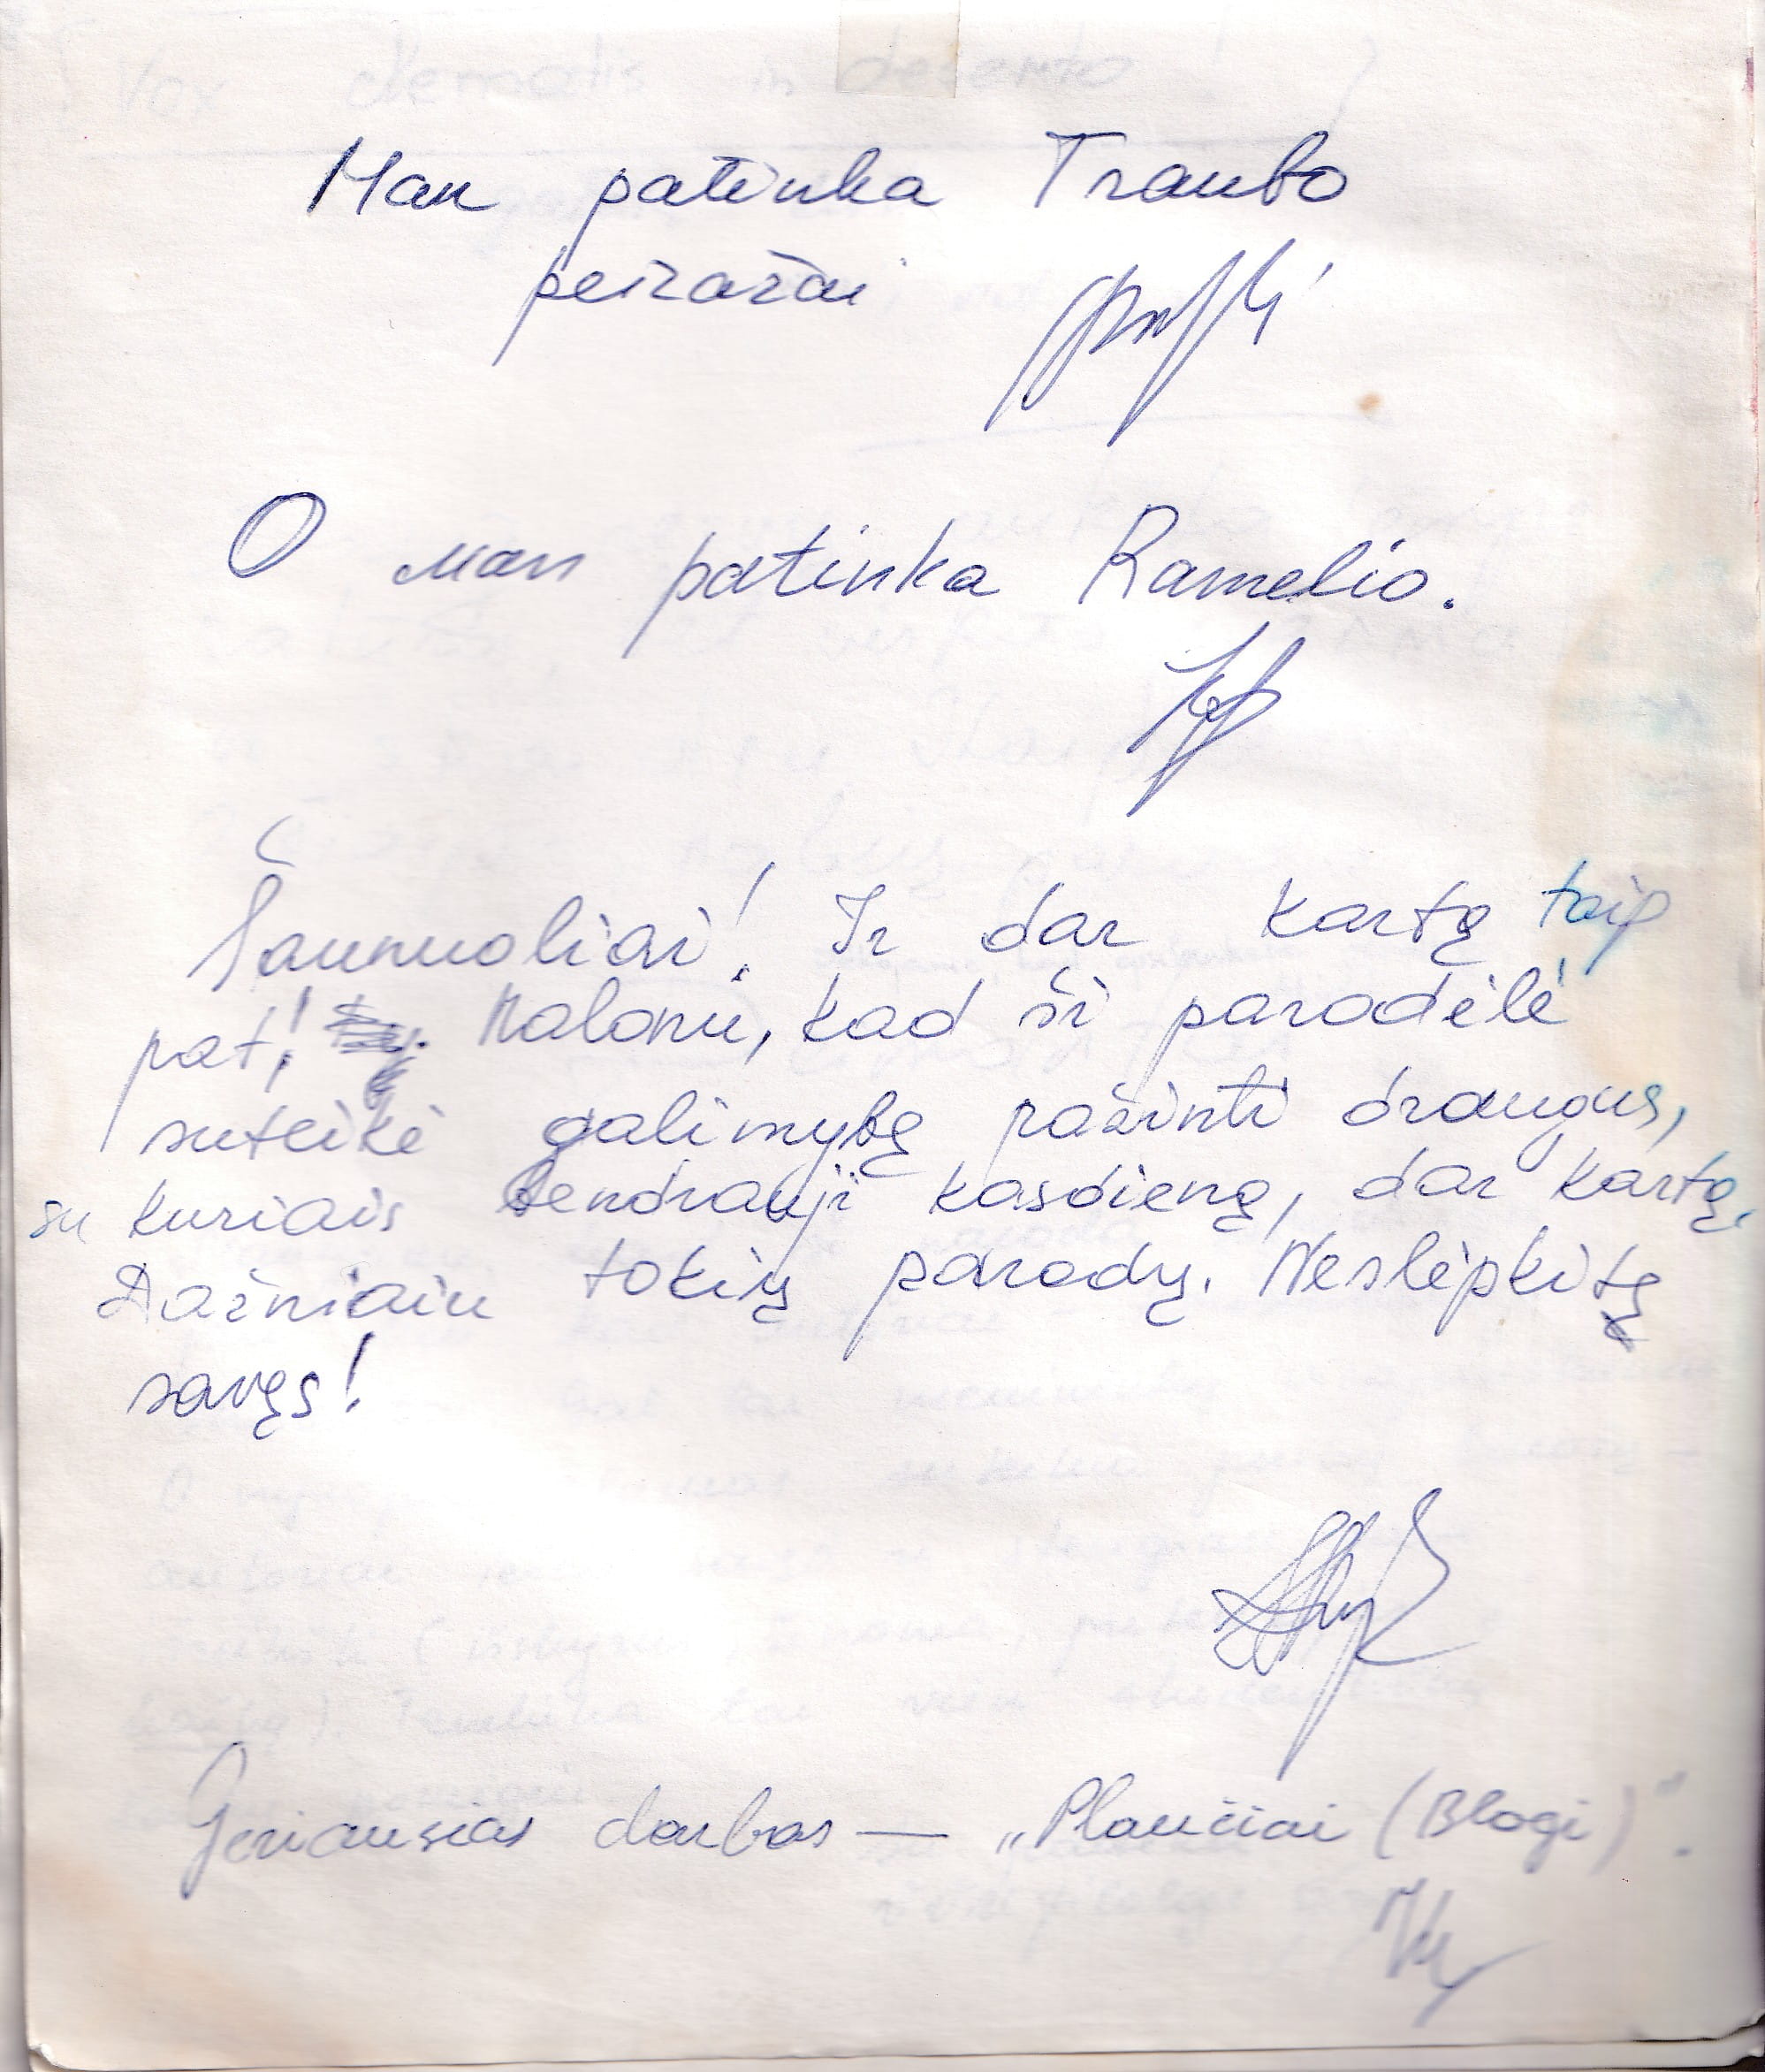 Man patinka Traubo
peizažai
O man patinka Ramelio.
Šaunuoliai! Ir dar kartą taip
pat! Malonu, kad ši parodėlė
suteikė galimybę pažinti draugus,
su kuriais bendrauji kasdieną, dar kartą.
Dažniau tokių parodų. Neslėpkitę
savęs!
Geriausias darbas — „Plaučiai (Blogi)".